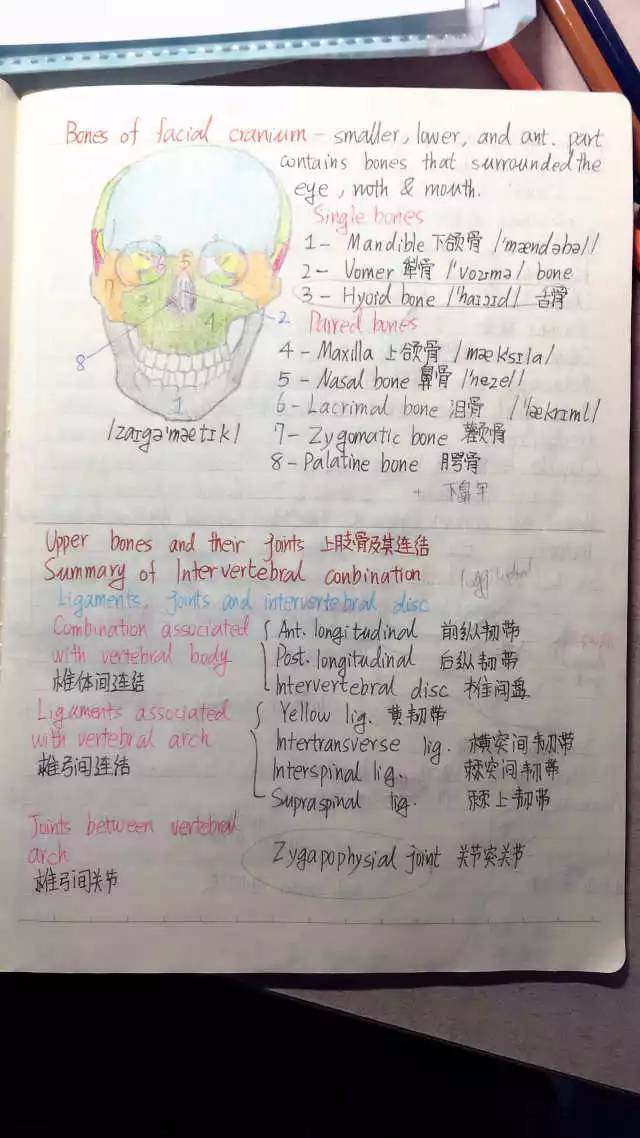 Bones of facial cranium - smaller, lower, and ant. part
contains bones that surrounded the
eye, noth & mouth.
Single bones
1- Mandible 下颌骨 /'mændəbəl/
2- Vomer 犁骨 /'voʊmə/ bone
3- Hyoid bone /'haɪɔɪd/ 舌骨
Paired bones
4- Maxilla 上颌骨 /mæk'sɪla/
5- Nasal bone 鼻骨 /'nezel/
6- Lacrimal bone 泪骨 /'lækrɪml/
7- Zygomatic bone 颧骨
8- Palatine bone 腭骨
+ 下鼻甲
5
7
4
2
8
1
/zaɪgə'mætɪk/
Upper bones and their joints 上肢骨及其连结
Summary of Intervertebral conbination
Ligaments, joints and intervertebral disc
Combination associated
with vertebral body
椎体间连结
Ant. longitudinal 前纵韧带
Post. longitudinal 后纵韧带
Intervertebral disc 椎间盘
Ligaments associated
with vertebral arch
椎弓间连结
Yellow lig. 黄韧带
Intertransverse lig. 横突间韧带
Interspinal lig. 棘突间韧带
Supraspinal lig. 棘上韧带
Joints between vertebral
arch
椎弓间关节
Zygapophysial joint 关节突关节